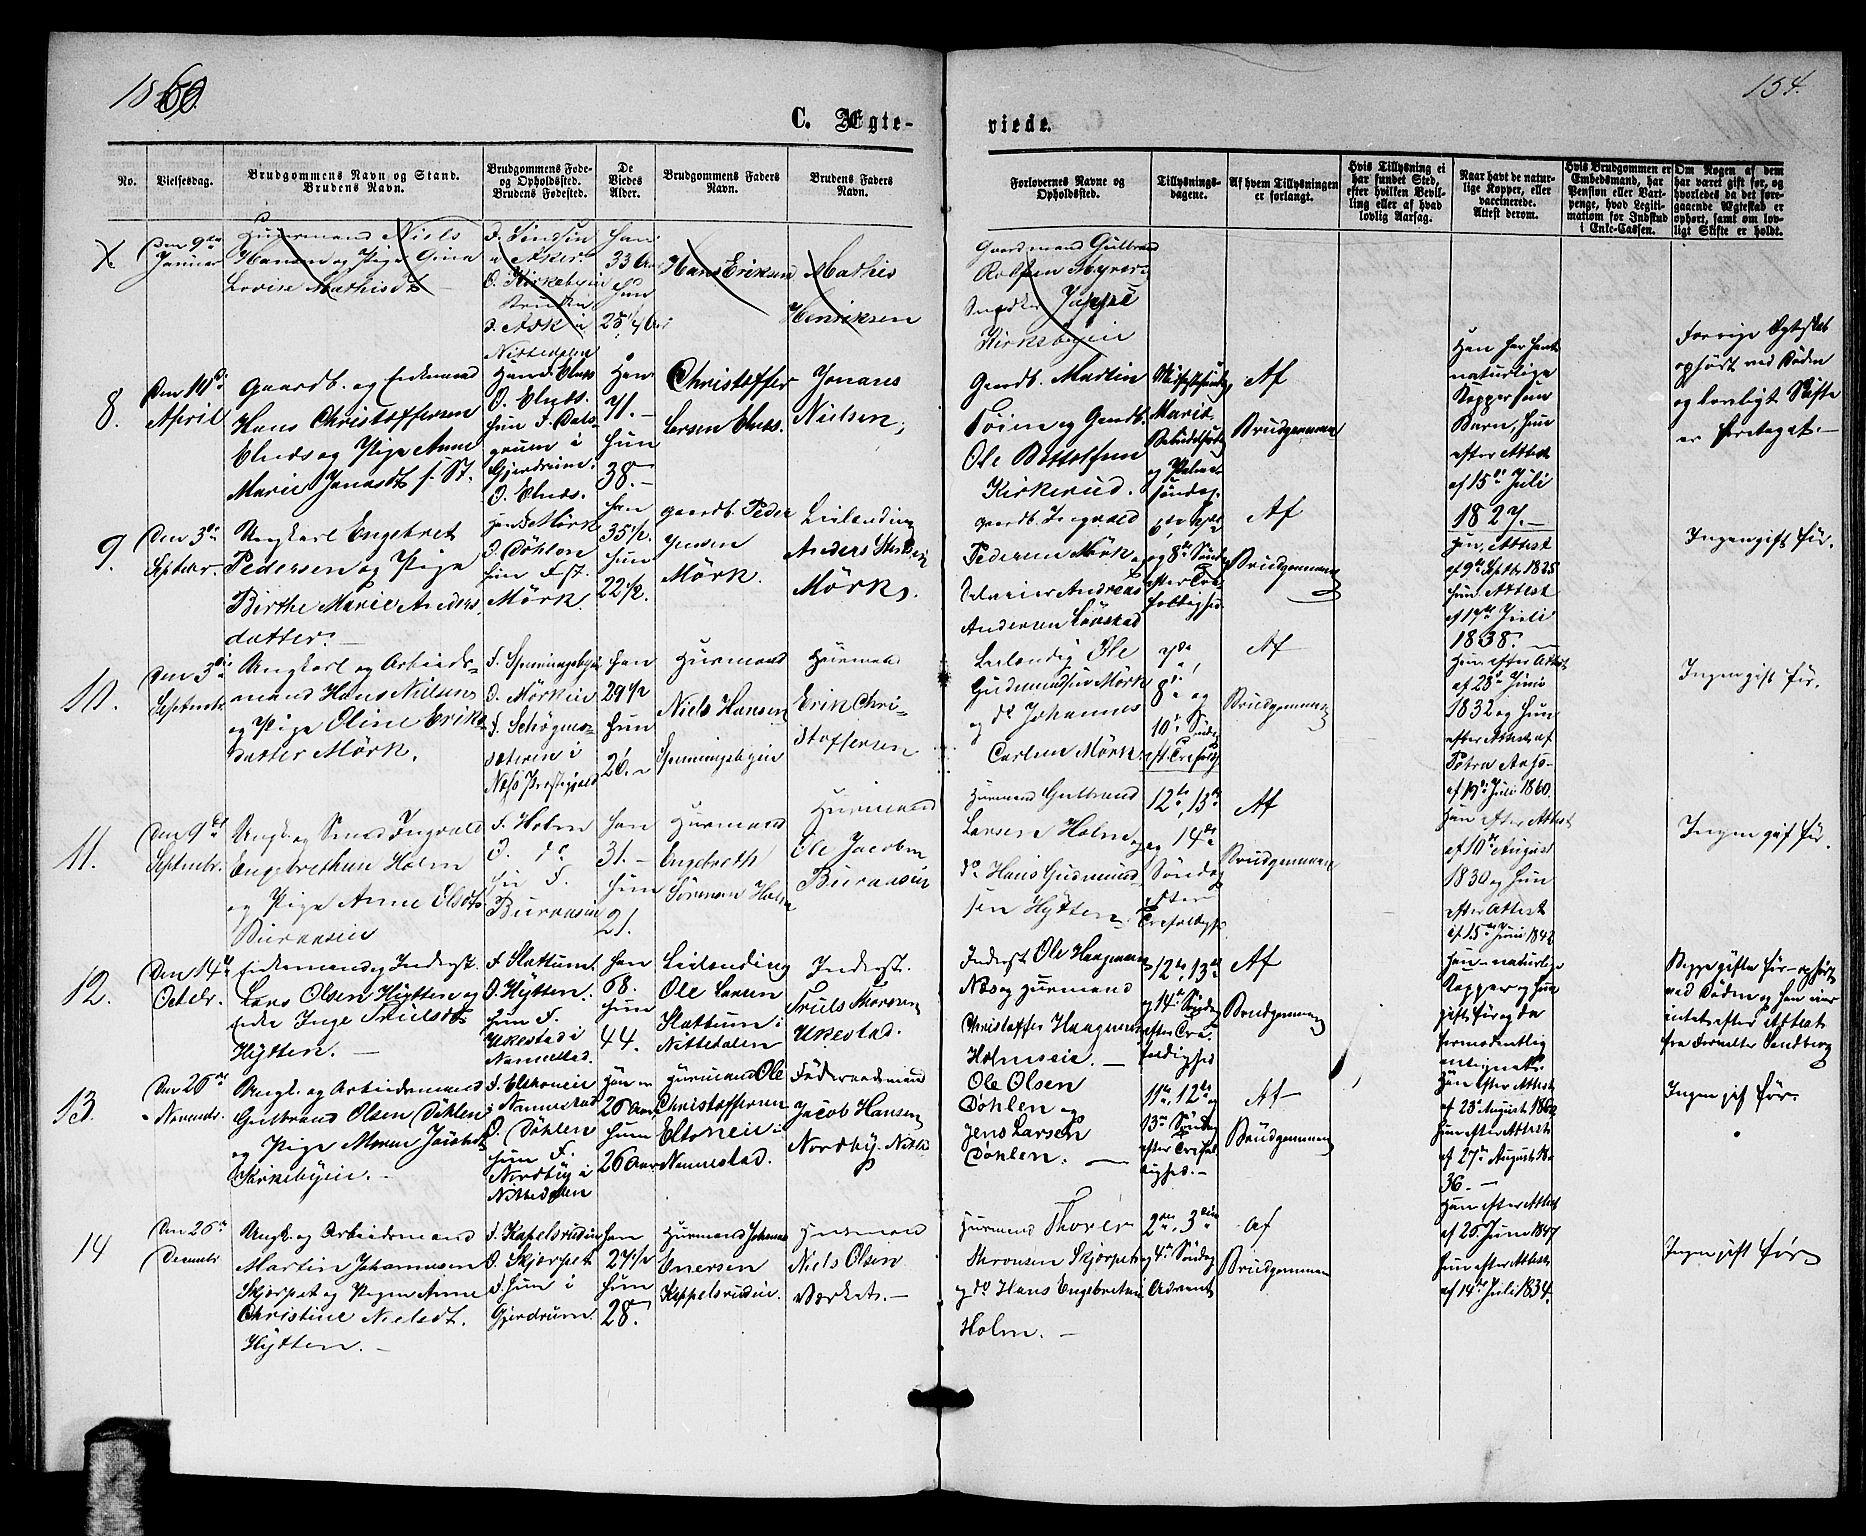 1860.
154.
C. Ægte-
viede.
No.
Vielsesdag.
Brudgommens Navn og Stand.
Brudens Navn.
Brudgommens Føde-
og Opholdssted.
Brudens Fødested.
De
Viedes
Alder.
Brudgommens Faders
Navn.
Brudens Faders
Navn.
Forlovernes Navne og
Opholdssted.
Tillysnings-
dagene.
Af hvem Tillysningen
er forlangt.
Hvis Tillysning ei
har fundet Sted,
efter hvilken Bevil-
ling eller af hvad
lovlig Aarsag.
Naar havt de natur-
lige Kopper, eller
vaccinerede.
Attest derom.
Hvis Brudgommen er
Embedsmand, har
Pension eller Vart-
penge, hvad Legiti-
mation for Indskud
i Enke-Cassen.
Om Nogen af dem
har været gift før, og
hvorledes da det fore-
gaaende Ægteskab er
ophørt, samt om lov-
ligt Skifte er holdt.
Januar
Huusmand Niels
Hansen og Pige Gina
Lovise Mathisdt
i Asker.
Nittedalen
33
Hun
25
Hans Eriksen
Mathies
Henriksen
Gaardmand Gulbrand
Kirkebyeie
8.
Den 10de
April
Gaardb. og Enkemand
Hans Christoffersen
Elnes og Pige Anne
Marie Jonasdt
Gjerdrum.
O. Elnes.
Han
71.
Hun
38.
Christoffer
Larsen Elnes.
Jonas
Nielsen,
Gaardb. Martin
Tøien og Gaardb.
Ole Bottolfsen
Kirkerud.
Maria
og Palme
Søndag.
Af
Brudgommen
Han har havt
naturlige
Kopper som
Barn, hun
efter Attest
af 15de Juli
1827.
Forrige Ægteskab
ophørt ved Døden
og lovligt Skifte
er foretaget.
9.
Den 3de
Septbr.
Ungkarl Engebret
Pedersen og Pige
Birthe Marie Anders
datter.
O. Døhlen
Hun F.
Mörk.
Han
35 1/2.
Hun
22 1/2.
Gaardb. Peder
Jensen
Mörk.
Leilending
Anders
Mörk.
Gaardb. Ingvald
Pedersen Mörk.
Andreas
Andersen
og 8de Sönd.
efter Tre-
foldighed.
Af
Brudgommen
Han, Attest
af 9de Septbr 1825
Hun, Attest
af 17de Juli
1838.
Ingen gift før.
10.
Den 3de
Septembr.
Ungkarl og Arbeids-
mand Hans Nielsen
og Pige Oline Eriks
datter Mörk.
F. Spenningsbyeie
O. Mörkeie
Næss Præstegjeld
Han
29 1/2
Hun
26.
Huusmand
Niels Hansen
Spenningsbyeie
Huusmand
Erik Chri-
stoffersen
Leilending Ole
Gudmundsen Mörk
og do Johannes
Carlsen Mörk.
7de,
8de og
10de Sönd.
eft. Trefold.
Af
Brudgommen
Han efter Attest
af 23de Junio
1832 og hun
efter Attest af
af 19de Juli 1860.
Ingen gift før.
11.
Den 9de
Septembr.
Ungk. og Smed Ingvald
Engebrethsen Holm
og Pige Anne Olsdt.
Buraaseie
F. Holm
O. do
Hun F.
Buraaseie
Han
31.
Hun
21.
Huusmand
Engebreth
Sörensen Holm
Huusmand
Ole Jacobsen
Buraaseie
Huusmand Gulbrand
Larsen Holm og
do Hans Gudmund-
sen Hytten.
12te, 13de
og 14de
Söndag
efter
Trefoldigh.
Af
Brudgommen
Han efter Attest
af 10de August
1830 og hun
efter Attest
af 15de Juni 1842
Ingen gift før.
12.
Den 14de
Octobr.
Enkemand og Inderst
Lars Olsen Hytten og
Enke Inge Trulsdt.
Hytten.
F. Slattum.
O. Hytten.
Hun F.
Ukestad i
Nannestad.
Han
68.
Hun
44.
Leilending
Ole Larsen
Slattum i
Nittedalen
Inderst.
Truls
Ukestad.
Inderst Ole Haagensen
Næs og Huusmand
Christoffer Haagensen
Holmseie.
12te, 13de
og 14de Söndag
efter Tre-
foldighed
Af
Brudgommen
Han naturlige
Kopper og hun
gift før og da
formodentlig
Begge gifte før og ophørt
ved Døden og
efter Attest
fra Sandberg
13.
Den 26de
Novembr.
Ungk. og Arbeidsmand
Gulbrand Olsen Døhlen
og Pige Maren Jacobsdt
Kirkebyeie.
i Nannestad
O. Døhlen
Hun F.
Nordby i
Nittedalen
Han er
26 Aar
Hun
26 Aar
Huusmand Ole
Christoffersen
Eltoneie i
Nannestad.
Föderaadsmand
Jacob Hansen
Nordby. Nittd.
Ole Olsen
Døhlen og
Jens Larsen
Døhlen.
11te, 12te og
13de Söndag
efter Trefol-
dighed.
Af
Brudgommen
Han efter Attest
af 23de August 18
Hun efter Attest
af 27de August 18
36.
Ingen gift før.
14
Den 26de
Decembr
Ungk. og Arbeidsmand
Martin Johannesen
Skjørpet og Pigen Anne
Christine Nielsdt.
Hytten.
F. Kapelsrudeie
O. Skjørpet
F. Hun i
Gjerdrum.
Han
27 1/2
Hun
28.
Huusmand Johannes
Enersen
Kappelsrudeie.
Huusmand
Niels Olsen
Værket.
Huusmand Thorer
Thronsen Skjørpet
og do Hans Engebretsen
Holm.
2den, 3die
og 4de Söndag
Advent
Af
Brudgommen
Han efter Attest
af 26. Juni 1847
Hun efter Attest
af 14de Juli 1834.
Ingen gift før